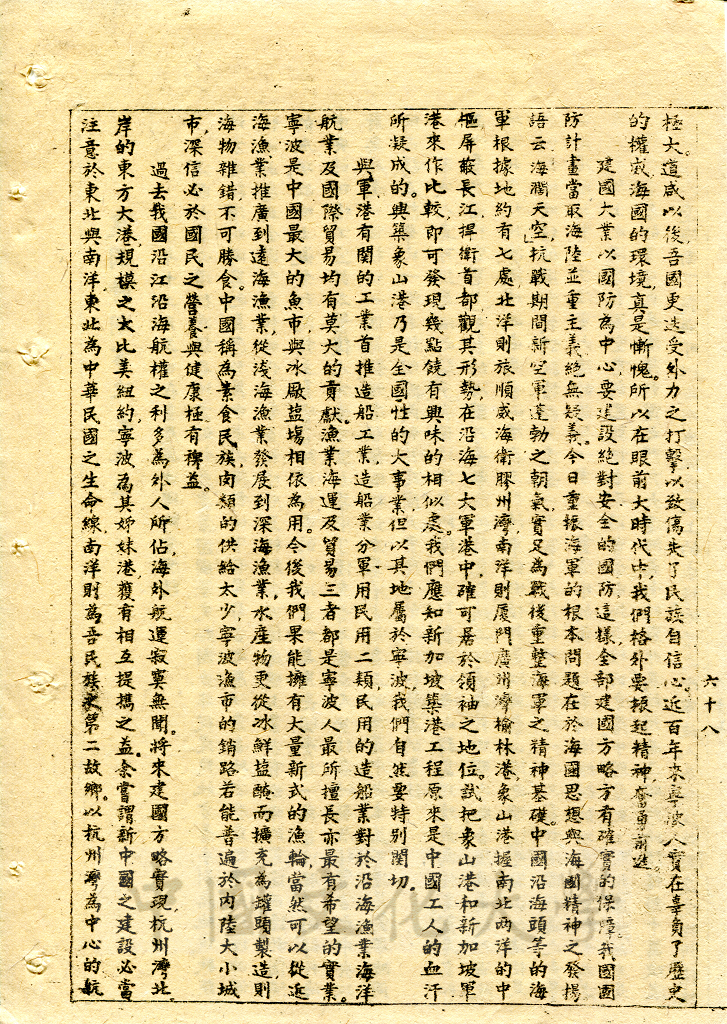 極大。道咸以後，吾國更迭受外力之打擊，以致傷失了民族自信心。近百年來寧波人實在辜負了歷史
的權威，海國的環境，真是慚愧。所以在眼前大時代中，我們格外要振起精神，奮勇前進。
建國大業以國防為中心，要建設絕對安全的國防，這樣全部建國方略方有確實的保障。我國國
防計畫當取海陸並重主義，絕無疑義。今日重振海軍的根本問題在於海國思想與海國精神之發揚
語云海闊天空，抗戰期間新空軍蓬勃之朝氣，實足為戰後重整海軍之精神基礎。中國沿海頭等的海
軍根據地約有七處，北洋則旅順威海衛膠州灣，南洋則厦門廣州灣榆林港，象山港握南北兩洋的中
樞，屏蔽長江，捍衛首都，觀其形勢，在沿海七大軍港中，確可居於領袖之地位。試把象山港和新加坡軍
港來作比較，即可發現幾點饒有興味的相似處。我們應知新加坡築港工程原來是中國工人的血汗
所凝成的。興築象山港乃是全國性的大事業，但以其地屬於寧波，我們自然要特別關切。
與軍港有關的工業首推造船工業，造船業分軍用民用二類，民用的造船業對於沿海漁業海洋
航業及國際貿易均有莫大的貢獻。漁業海運及貿易三者都是寧波人最所擅長，亦最有希望的實業。
寧波是中國最大的魚市，與冰廠鹽場相依為用。今後我們果能擁有大量新式的漁輪，當然可以從近
海漁業推廣到遠海漁業，從淺海漁業發展到深海漁業，水產物更從冰鮮鹽醃而擴充為罐頭製造，則
海物雜錯，不可勝食。中國稱為素食民族，肉類的供給太少，寧波漁市的銷路若能普遍於內陸大小城
市，深信必於國民之營養與健康極有稗益。
過去我國沿江沿海航權之利多為外人所佔，海外航運寂寞無聞。將來建國方略實現，杭州灣北
岸的東方大港，規模之大比美紐約，寧波為其姊妹港，獲有相互提攜之益。余嘗謂新中國之建設必當
注意於東北與南洋，東北為中華民國之生命線，南洋則為吾民族之第二故鄉。以杭州灣為中心的航
六十八
中國文化大學